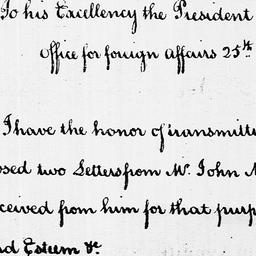 To his Excellency the President
Office for foreign affairs 25th
I have the honor of transmitti
osed two Letters from Mr. John
ceived from him for that purp
nd Esteem &c.